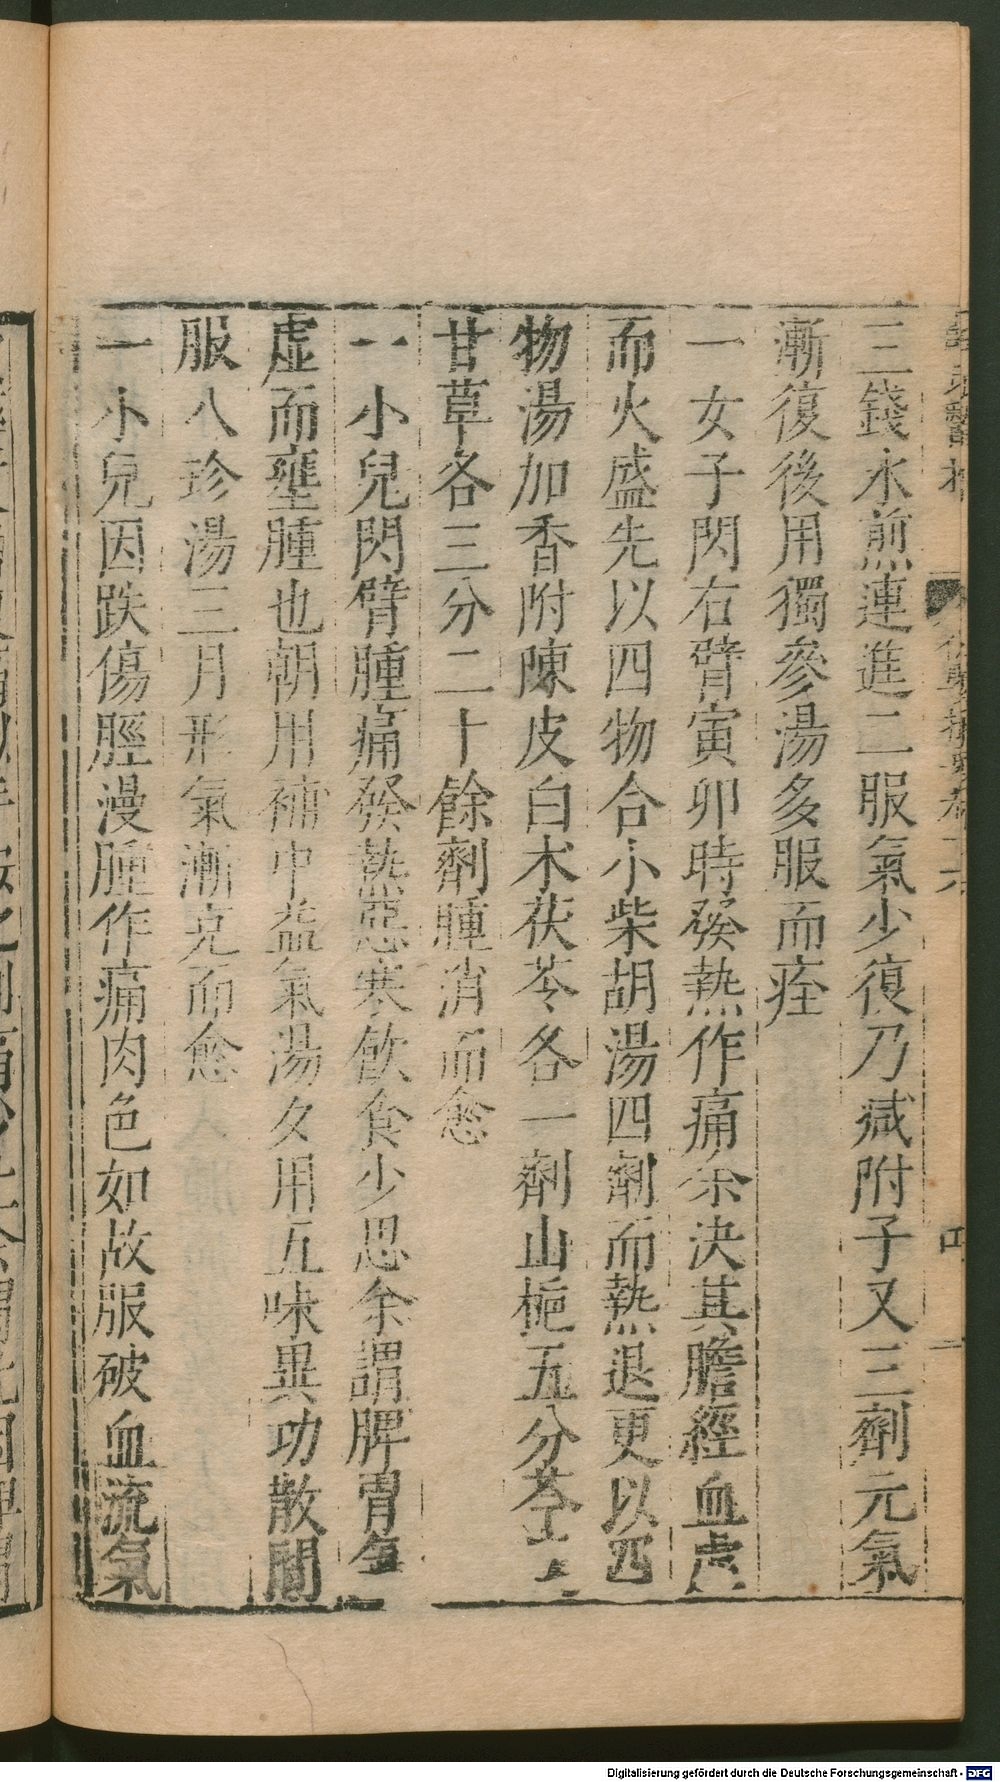 三錢水煎連進二服氣少復乃減附子又三劑元氣
漸復後用獨參湯多服而痊
一女子閃右臂寅卯時發熱作痛余決其膽經血虛
而火盛先以四物合小柴胡湯四劑而熱退更以四
物湯加香附陳皮白朮茯苓各一劑山梔五分芩
甘草各三分二十餘劑腫消而愈
一小兒閃臂腫痛發熱惡寒飲食少思余謂脾胃氣
虛而壅腫也朝用補中益氣湯夕用五味異功散間
服八珍湯三月形氣漸充而愈
一小兒因跌傷脛漫腫作痛肉色如故服破血流氣
Digitalisierung gefördert durch die Deutsche Forschungsgemeinschaft - DFG